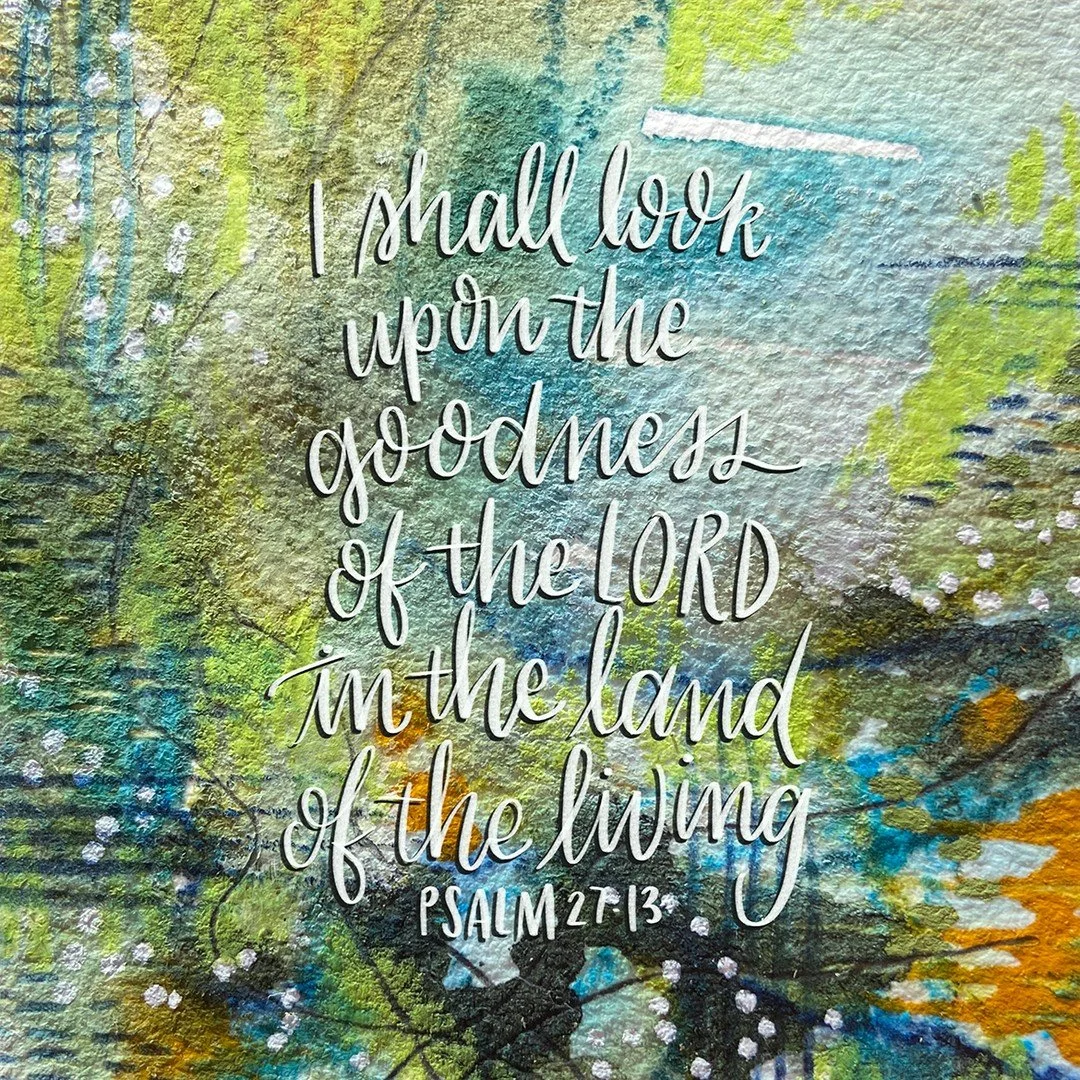 I shall look
upon the
goodness
of the LORD
in the land
of the living
PSALM 27:13